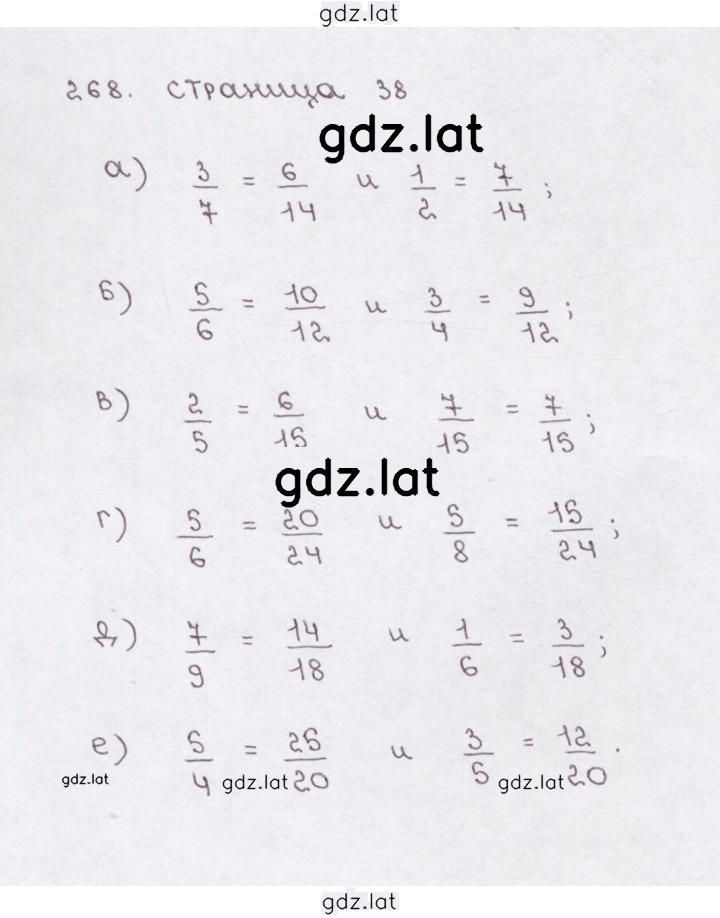 gdz.lat
268. страница 38
gdz.lat
а) 3/7 = 6/14 и 1/2 = 7/14 ;
б) 5/6 = 10/12 и 3/4 = 9/12 ;
в) 2/5 = 6/15 и 7/15 = 7/15 ;
gdz.lat
г) 5/6 = 20/24 и 5/8 = 15/24 ;
д) 7/9 = 14/18 и 1/6 = 3/18 ;
е) 5/4 = 25/20 и 3/5 = 12/20 .
gdz.lat gdz.lat gdz.lat
gdz.lat